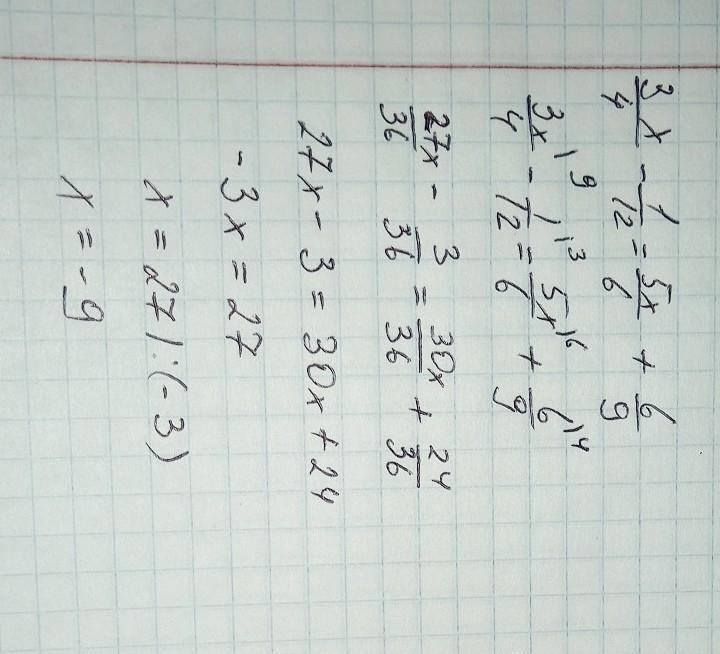 3/4 x - 1/12 = 5x/6 + 6/9
3x/4 |9 - 1/12 |3 = 5x/6 |6 + 6/9 |4
27x/36 - 3/36 = 30x/36 + 24/36
27x - 3 = 30x + 24
-3x = 27
x = 27 | : (-3)
x = -9